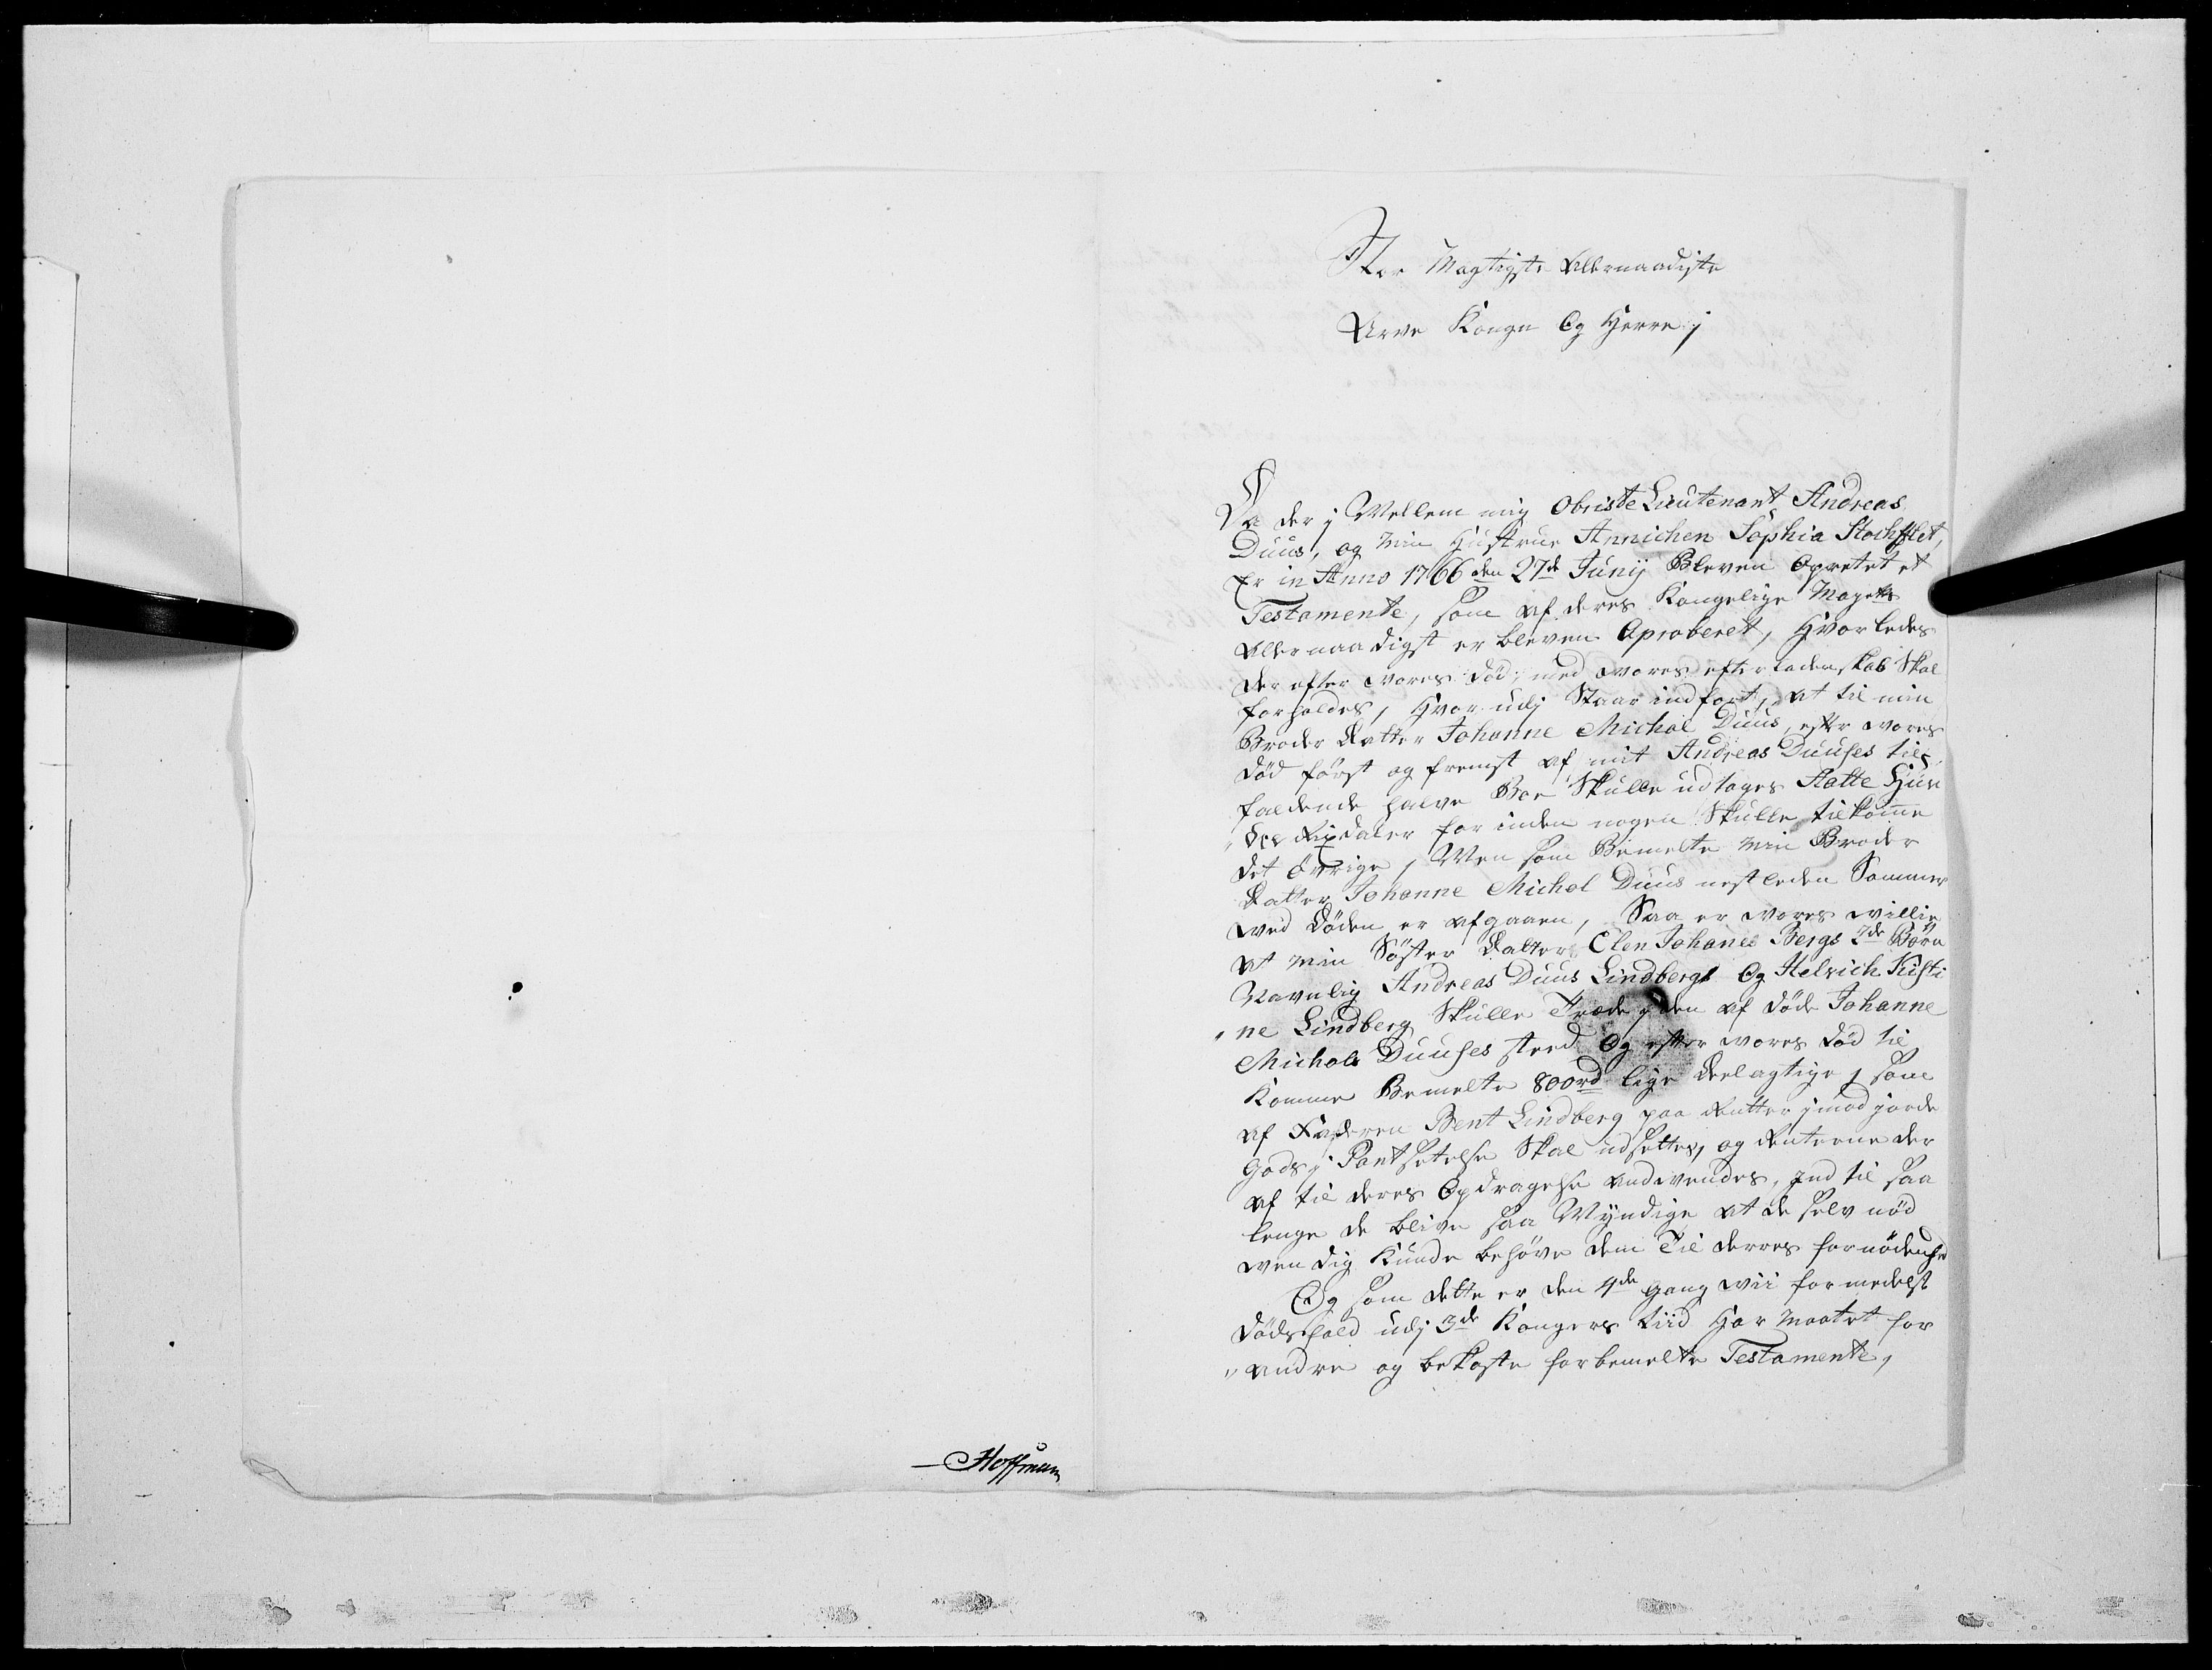 Hoffman
Stor Magtigste Allernaadigste
Arve Konge Og Herre j
Da der j Mellem mig Obriste Lieutenant Andreas
Duus, og min Hustrue Annichen Sophia Stochflet,
Er in Anno 1766 den 27de Junij Bleven Opretet et
Testamente, som af deres Kongelige Mayets
Allernaadigst er bleven Aproberet, Hvorledes
der efter vores død, med vores efterladenskab skal
forholdes, Hvor udj Staar indført, at til min
Broder Datter Johanne Michal Duus, efter vores
død først og fremst af mit Andreas Duuses til¬
faldende halve Boe Skulle udtages Aatte Hun
"dre Rixdaler for inden nogen Skulle tilkomme
det Øvrige, Men som Bemelte min Broder
Datter Johanne Michel Duus nestleden Sommer
ved Døden er afgaaen, Saa er vores willie
at min Søster Datter Elen Johanes Bergs 2de Børn
Navnlig Andreas Duus Lindbergs Og Helvich Kisti
"ne Lindberg Skulle Træde j den af døde Johanne
Michals Duuses sted Og efter vores død til
Komme Bemelte 800rd lige deelagtige, som
af Faderen Bent Lindberg paa Rentter jmod jorde
Gods j Pantsetelse Skal udsettes, og Renterne der
af til deres Opdragelse andvendes, Ind til saa
lenge de blive saa Myndige at de selv nød
vendig Kunde behøve dem Til derres fornødenhed
Og som dette er den 4de gang wii formedelst
dødsfald udj 3de Kongers tiid Har maatet for
"andre og bekoste forbemelte Testamente,